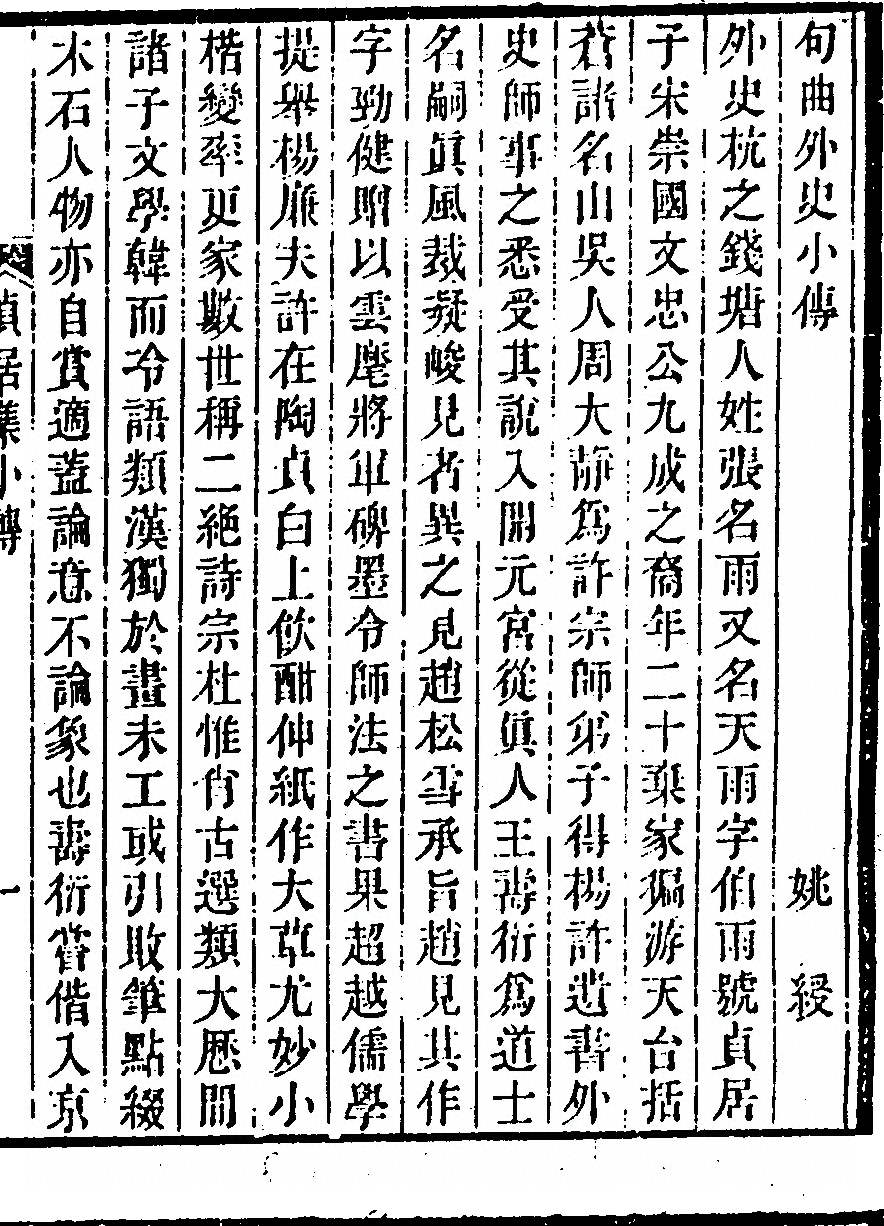 句曲外史小傳　姚綬
外史杭之錢塘人姓張名雨又名天雨字伯雨號貞居
子宋崇國文忠公九成之裔年二十棄家徧游天台括
蒼諸名山吳人周大靜爲許宗師弟子得楊許遺書外
史師事之悉受其說入開元宮從眞人王壽衍爲道士
名嗣眞風裁凝峻見者異之見趙松雪承旨趙見其作
字勁健贈以雲麾將軍碑墨令師法之書果超越儒學
提舉楊廉夫許在陶貞白上飲酣伸紙作大草尤妙小
楷變率更家數世稱二絕詩宗杜惟肖古選類大厯間
諸子文學韓而冷語類漢獨於畫未工或引敗筆點綴
木石人物亦自賞適蓋論意不論象也壽衍嘗偕入京
貞居集小傳
一